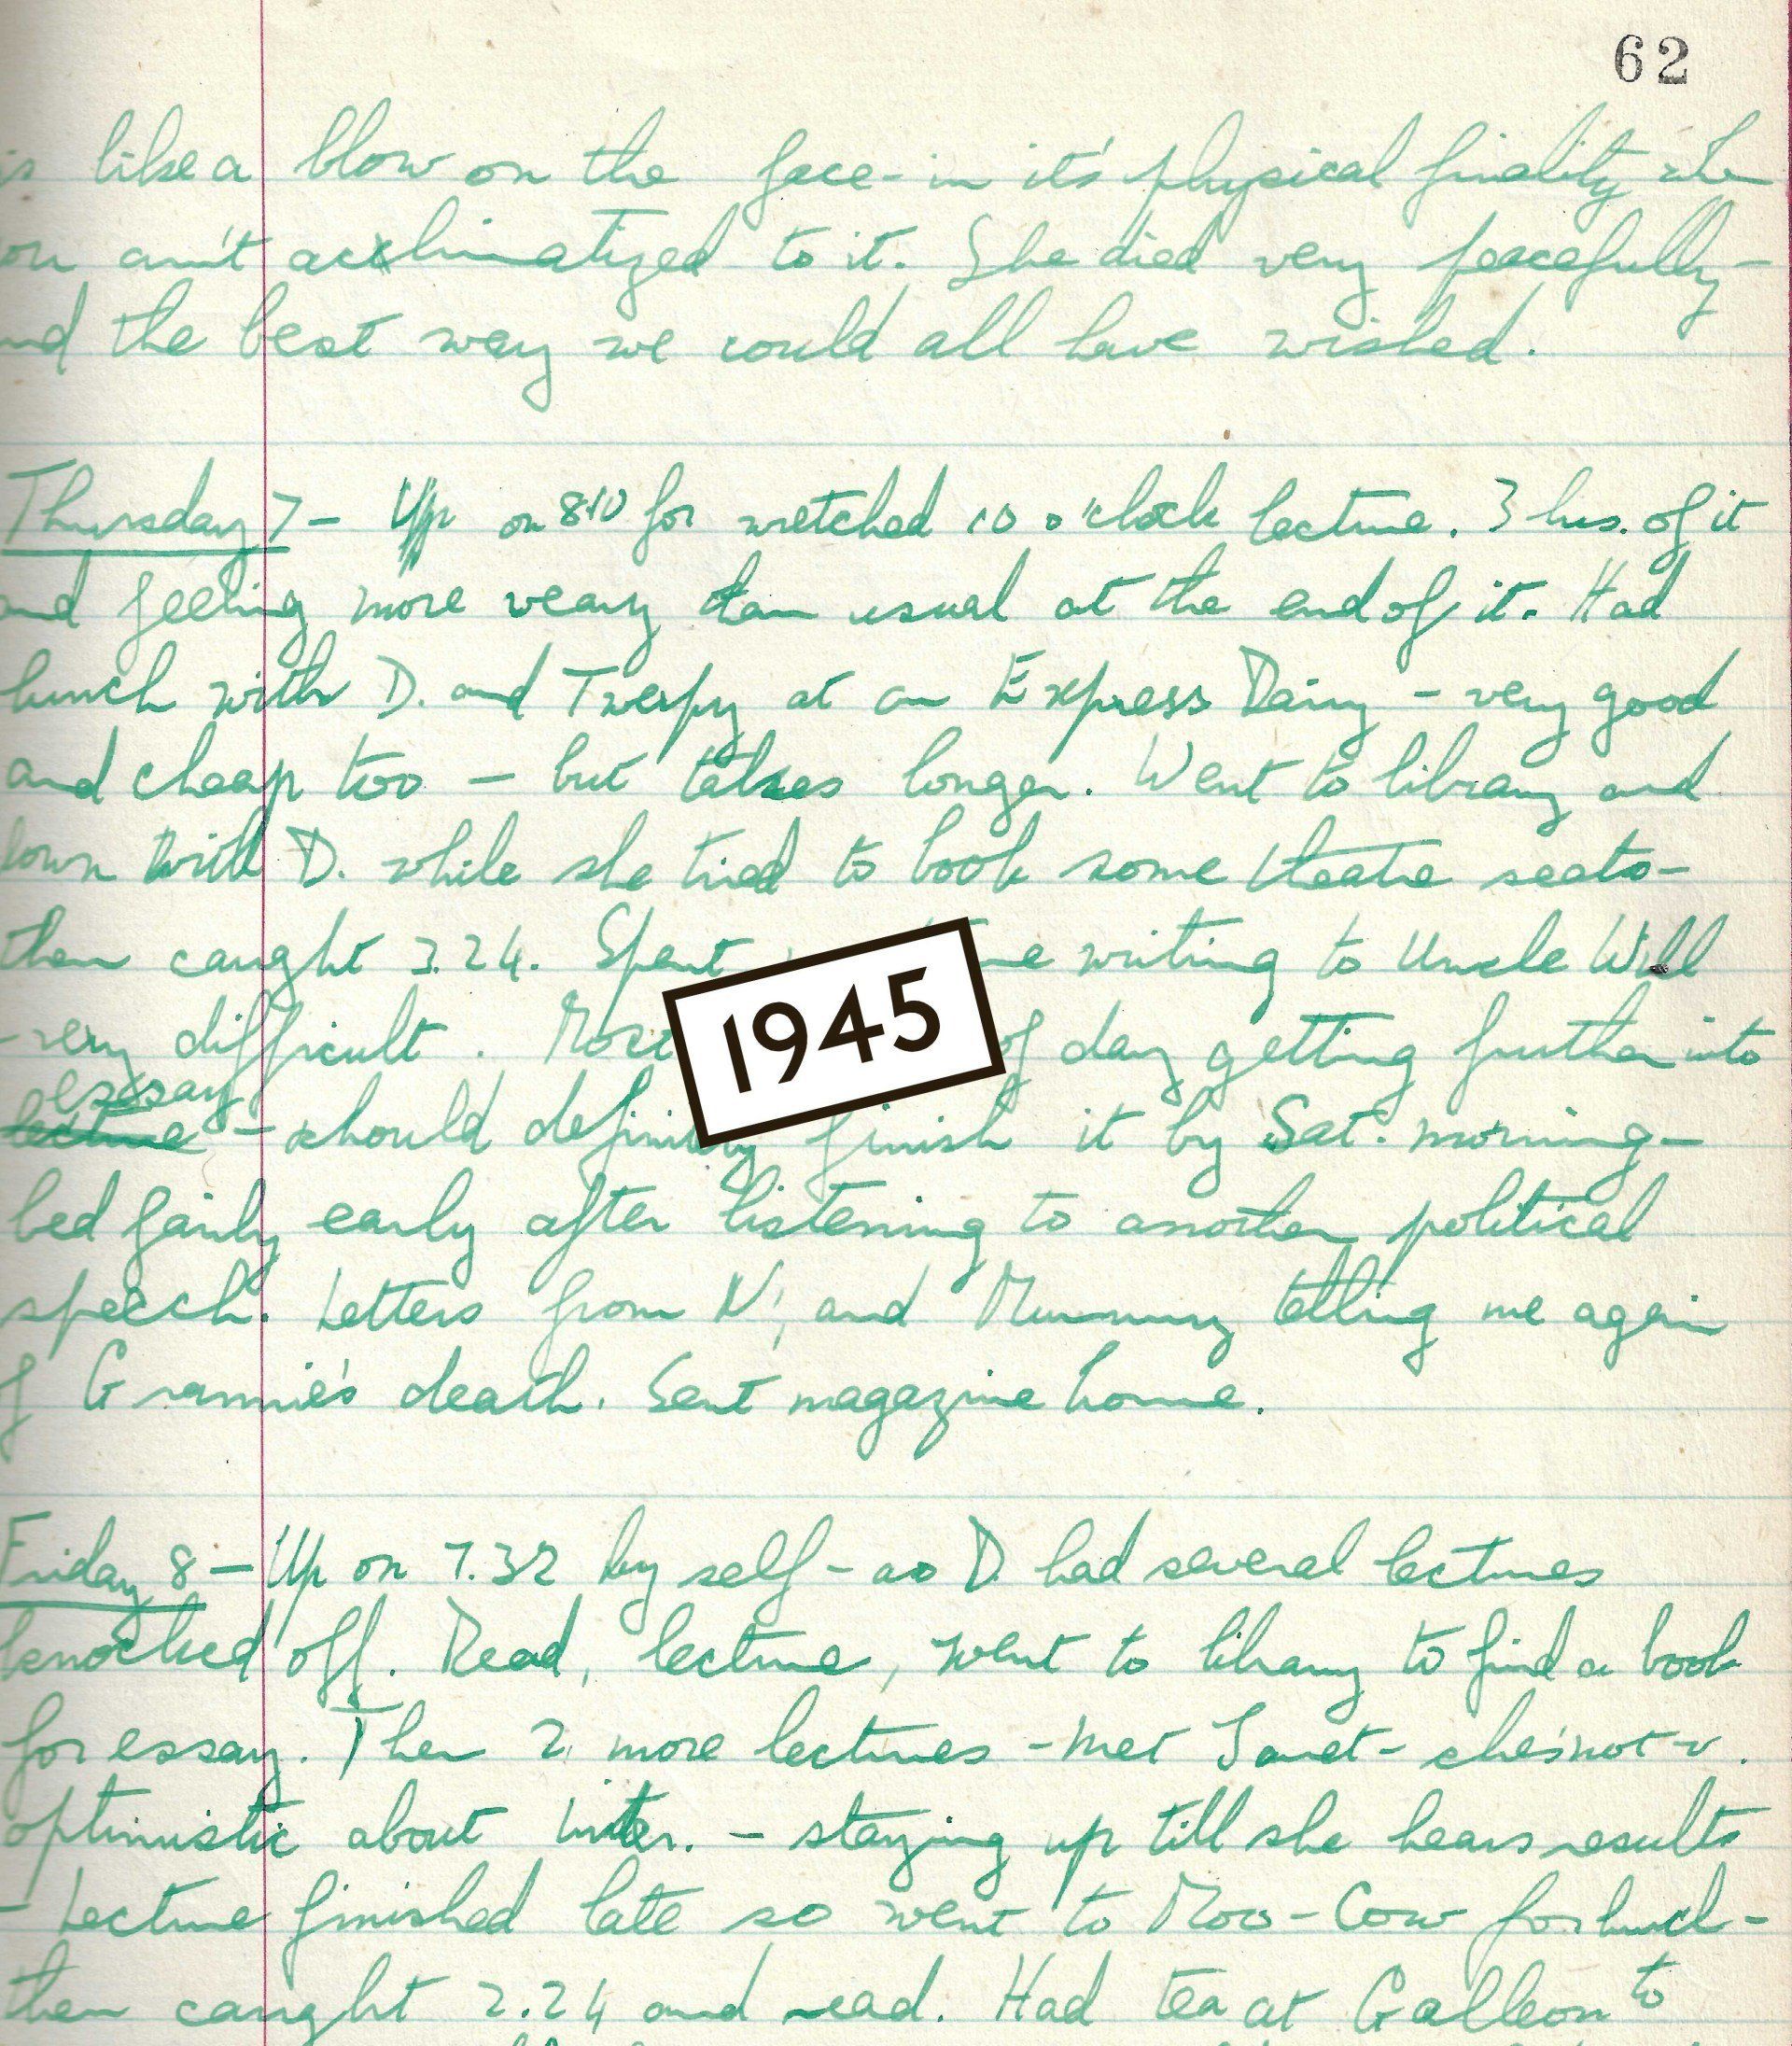 62
is like a blow on the face - in it's physical finality when
on ain't acclimatized to it. She died very peacefully -
nd the best way we could all have wished.
Thursday 7 - Up on 8.10 for wretched 10 o'clock lecture. 3 hrs. of it
and feeling more weary than usual at the end of it. Had
lunch with D. and Twerpy at an Express Dairy - very good
and cheap too - but takes longer. Went to library and
town with D. while she tried to book some theatre seats -
then caught 3.24. Spent writing to Uncle Will
- very difficult. Most of day getting further into
essay
lecture - should definitly finish it by Sat. morning -
bed fairly early after listening to another political
speech. Letters from N, and Mummy telling me again
of Grannie's death. Sent magazine home.
1945
Friday 8 - Up on 7.32 by self - as D. had several lectures
knocked off. Read, lecture, went to library to find a book
for essay. Then 2 more lectures - met Janet - she's not v.
optimistic about Inter. - staying up till she hears results
- Lecture finished late so went to Moo-Cow for lunch -
then caught 2.24 and read. Had tea at Galleon to